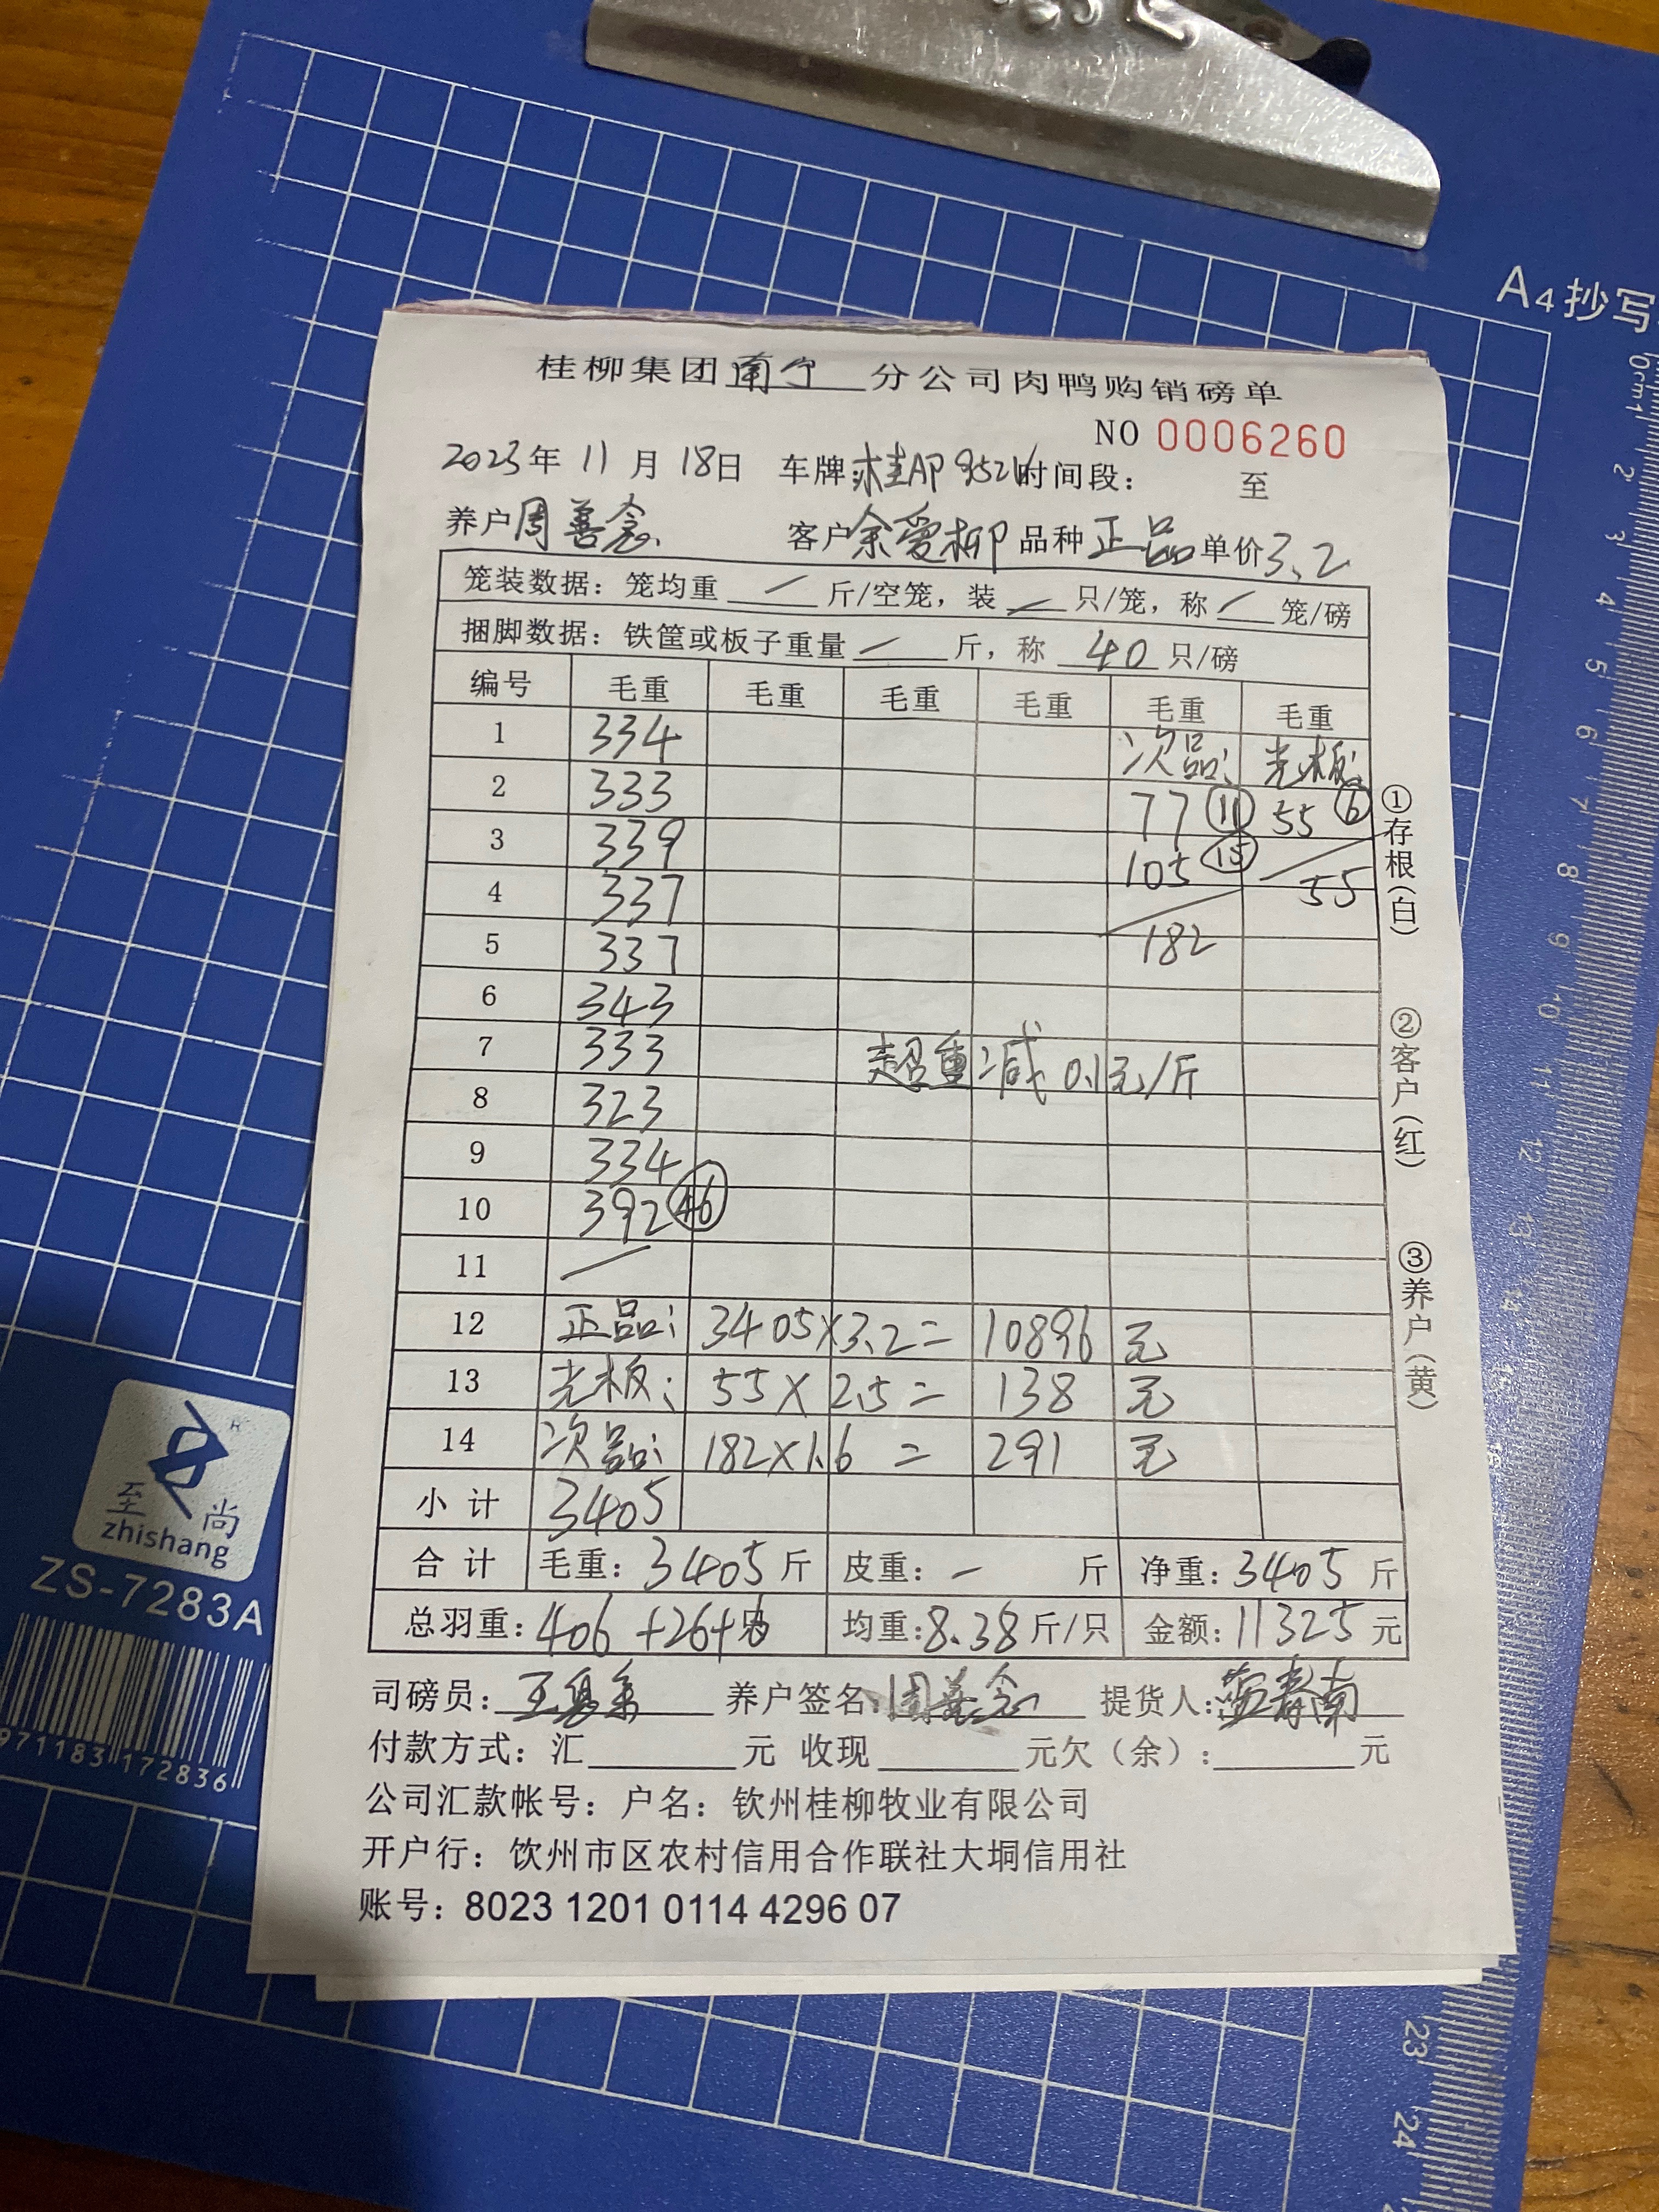 A4抄写
0cm1 2 3 4 5 6 7 8 9 10 11 12 13 14
23 24
桂柳集团南宁分公司肉鸭购销磅单
NO 0006260
2023年 11月 18日 车牌:桂AP 952 时间段: 至
养户周善念 客户余爱柳 品种正品 单价3.2
笼装数据：笼均重 / 斤/空笼，装 / 只/笼，称 / 笼/磅
捆脚数据：铁筐或板子重量 / 斤，称 40 只/磅
编号 毛重 毛重 毛重 毛重 毛重 毛重
1 334 次品: 光板:
2 333 77 ⑪ 55 ⑥
3 339 105 ⑮
4 337 55
5 337 182
6 343
7 333 超重减0.1元/斤
8 323
9 334
10 392 ㊻
11 /
12 正品: 3405×3.2= 10896 元
13 光板: 55×2.5= 138 元
14 次品: 182×1.6= 291 元
小计 3405
合计 毛重: 3405 斤 皮重: — 斤 净重: 3405 斤
总羽重: 406+26+6 均重: 8.38 斤/只 金额: 11325 元
司磅员: 养户签名: 周善念 提货人:
付款方式：汇 元 收现 元欠（余）: 元
公司汇款帐号：户名：钦州桂柳牧业有限公司
开户行：饮州市区农村信用合作联社大垌信用社
账号：8023 1201 0114 4296 07
①存根(白)
②客户(红)
③养户(黄)
至尚
R
zhishang
ZS-7283A
971183 172836